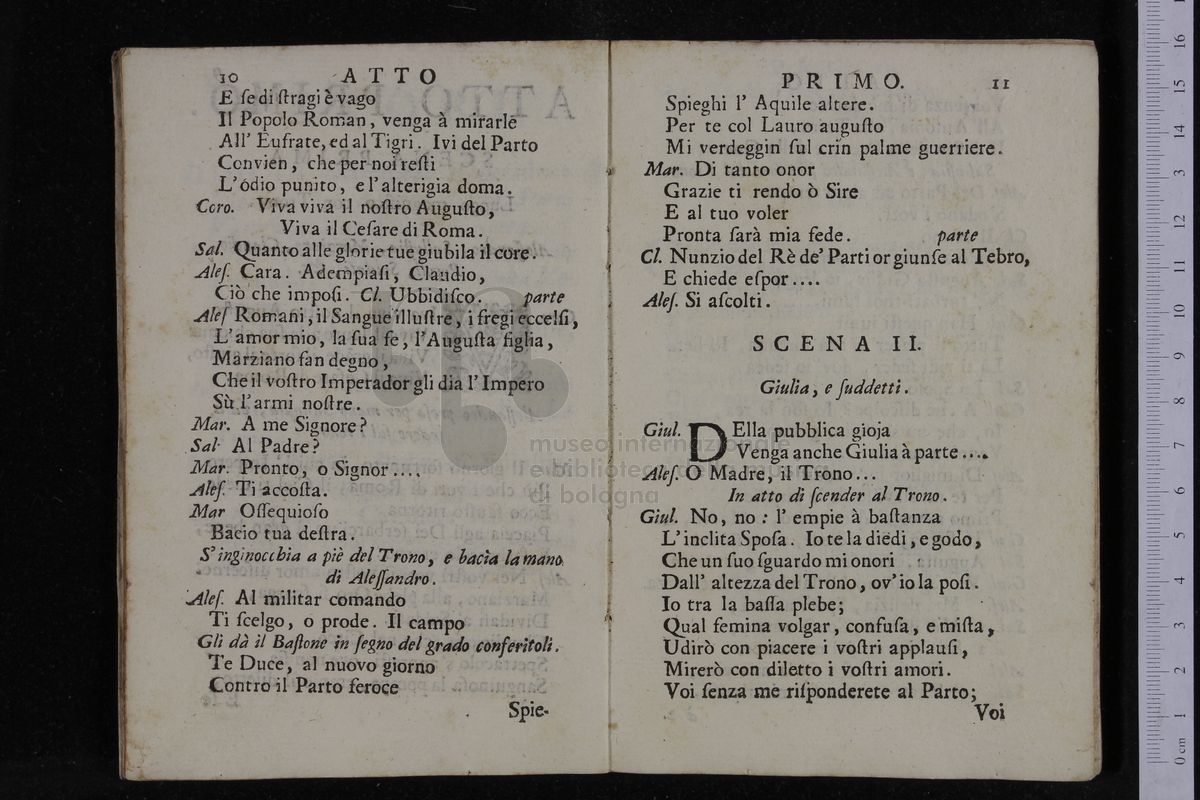 10 ATTO
E ſe di ſtragi è vago
Il Popolo Roman, venga à mirarle
All' Eufrate, ed al Tigri. Ivi del Parto
Convien, che per noi reſti
L'odio punito, e l'alterigia doma.
Coro. Viva viva il noſtro Auguſto,
Viva il Ceſare di Roma.
Sal. Quanto alle glorie tue giubila il core.
Aleſ. Cara. Adempiaſi, Claudio,
Ciò che impoſi. Cl. Ubbidiſco. parte
Aleſ Romani, il Sangue illuſtre, i fregi eccelſi,
L'amor mio, la ſua fe, l'Auguſta figlia,
Marziano fan degno,
Che il voſtro Imperador gli dia l'Impero
Sù l'armi noſtre.
Mar. A me Signore?
Sal. Al Padre?
Mar. Pronto, o Signor....
Aleſ. Ti accoſta.
Mar Oſſequioſo
Bacio tua deſtra.
S'inginocchia a piè del Trono, e bacia la mano
di Aleſſandro.
Aleſ. Al militar comando
Ti ſcelgo, o prode. Il campo
Gli dà il Baſtone in ſegno del grado conferitoli.
Te Duce, al nuovo giorno
Contro il Parto feroce
Spie-
PRIMO. 11
Spieghi l' Aquile altere.
Per te col Lauro auguſto
Mi verdeggin ſul crin palme guerriere.
Mar. Di tanto onor
Grazie ti rendo ò Sire
E al tuo voler
Pronta ſarà mia fede. parte
Cl. Nunzio del Rè de' Parti or giunſe al Tebro,
E chiede eſpor....
Aleſ. Si aſcolti.
SCENA II.
Giulia, e ſuddetti.
Giul. DElla pubblica gioja
Venga anche Giulia à parte....
Aleſ. O Madre, il Trono...
In atto di ſcender al Trono.
Giul. No, no: l' empie à baſtanza
L'inclita Spoſa. Io te la diedi, e godo,
Che un ſuo ſguardo mi onori
Dall' altezza del Trono, ov' io la poſi.
Io tra la baſſa plebe;
Qual femina volgar, confuſa, e miſta,
Udirò con piacere i voſtri applauſi,
Mirerò con diletto i voſtri amori.
Voi ſenza me riſponderete al Parto;
Voi
museo internazionale
e biblioteca della musica
di bologna
0 cm 1 2 3 4 5 6 7 8 9 10 11 12 13 14 15 16